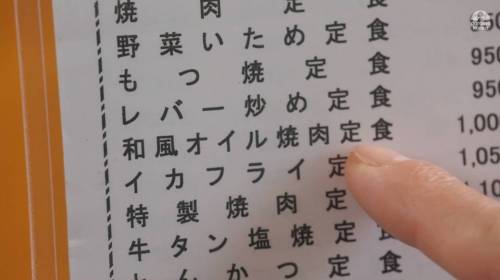 焼肉定食
野菜いため定食
もつ焼定食 950
レバー炒め定食 950
和風オイル焼肉定食 1,00
イカフライ定 1,05
特製焼肉定
牛タン塩焼定食
んかつ定食